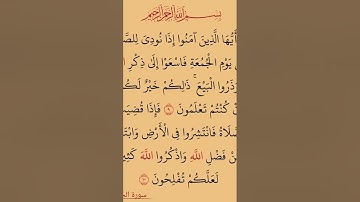 بِسْمِ اللَّهِ الرَّحْمَٰنِ الرَّحِيمِ
أَيُّهَا الَّذِينَ آمَنُوا إِذَا نُودِيَ لِلصَّ
يَوْمِ الْجُمُعَةِ فَاسْعَوْا إِلَىٰ ذِكْرِ ا
وَذَرُوا الْبَيْعَ ۚ ذَٰلِكُمْ خَيْرٌ لَكُ
نْ كُنْتُمْ تَعْلَمُونَ ٩ فَإِذَا قُضِيَتِ
صَّلَاةُ فَانْتَشِرُوا فِي الْأَرْضِ وَابْتَ
نْ فَضْلِ اللَّهِ وَاذْكُرُوا اللَّهَ كَثِي
لَعَلَّكُمْ تُفْلِحُونَ ١٠
سورة الج